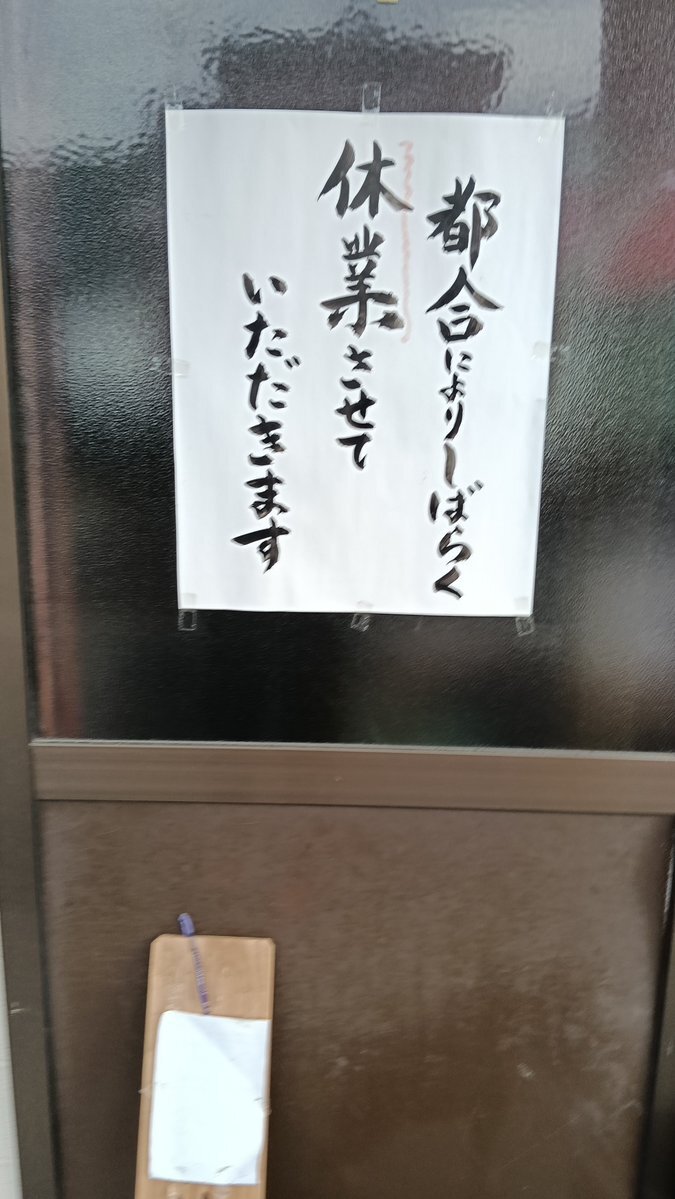 都合によりしばらく
休業とさせて
いただきます